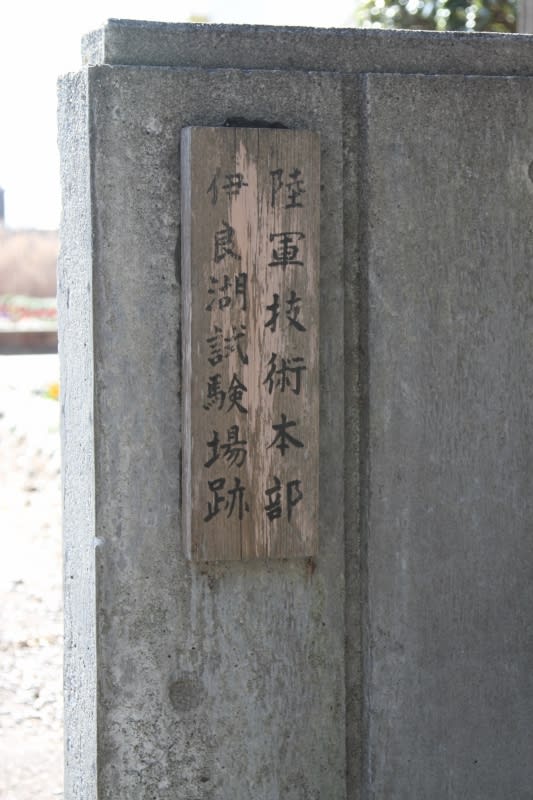 陸軍技術本部
伊良湖試験場跡